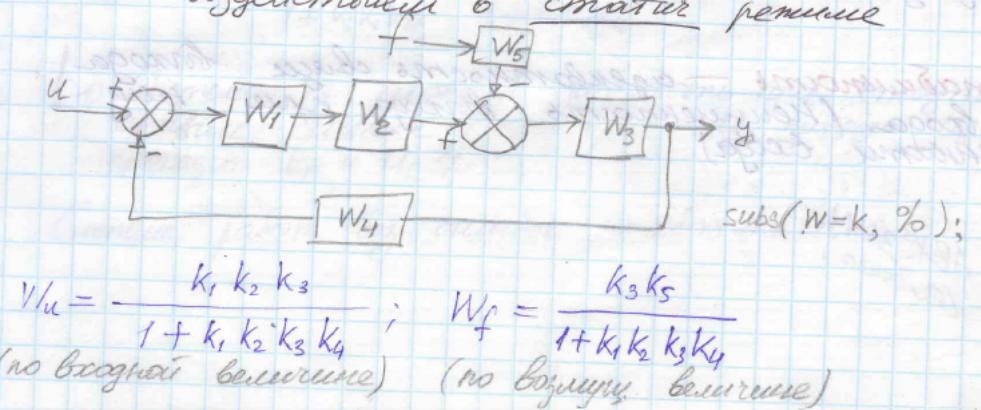 в статич режиме
f W5
u + W1 W2 + - W3 y
- W4
subs(W=k, %);
Wu = k1 k2 k3 / 1 + k1 k2 k3 k4 ; Wf = k3 k5 / 1 + k1 k2 k3 k4
(по входной величине) (по возмущ. величине)